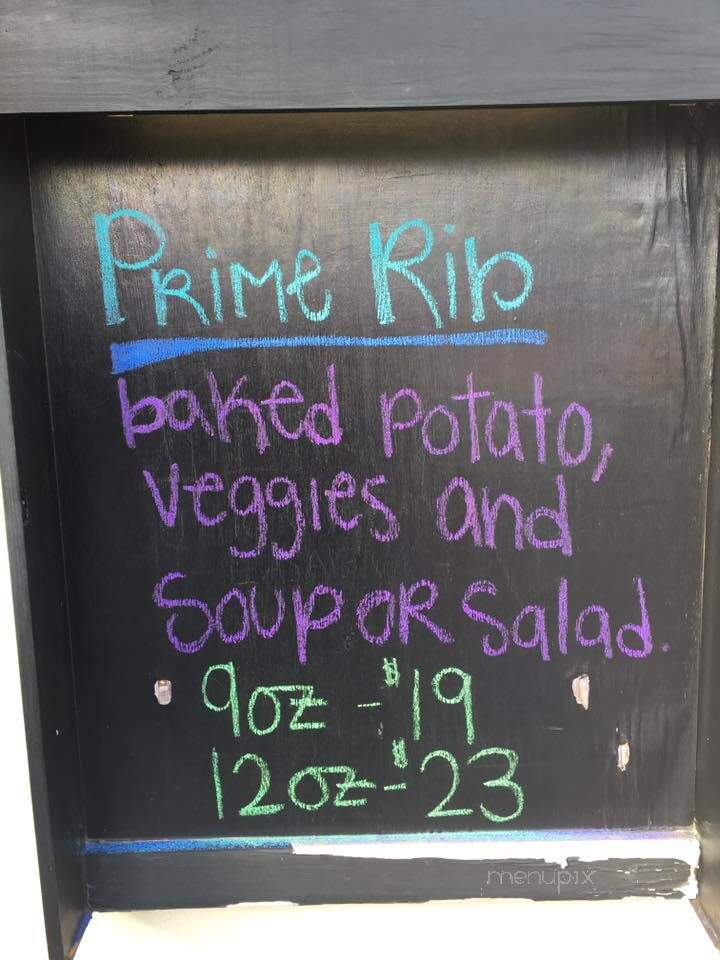 PRiMe Rib
baked potato,
veggies and
Soup OR Salad.
9oz - $19
12oz - $23
menupix